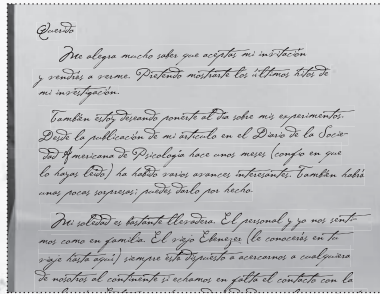 Querido
Me alegra mucho saber que aceptas mi invitación
y vendrás a verme. Pretendo mostrarte los últimos hitos de
mi investigación.
También estoy deseando ponerte al día sobre mis experimentos.
Desde la publicación de mi artículo en el Diario de la Socie-
dad Americana de Psicología hace unos meses (confío en que
lo hayas leído) ha habido varios avances interesantes. También habrá
unas pocas sorpresas; puedes darlo por hecho.
Mi soledad es bastante llevadera. El personal y yo nos senti-
mos como en familia. El viejo Ebenezer (le conocerás en tu
viaje hasta aquí) siempre está dispuesto a acercarnos a cualquiera
de nosotros al continente si echamos en falta el contacto con la